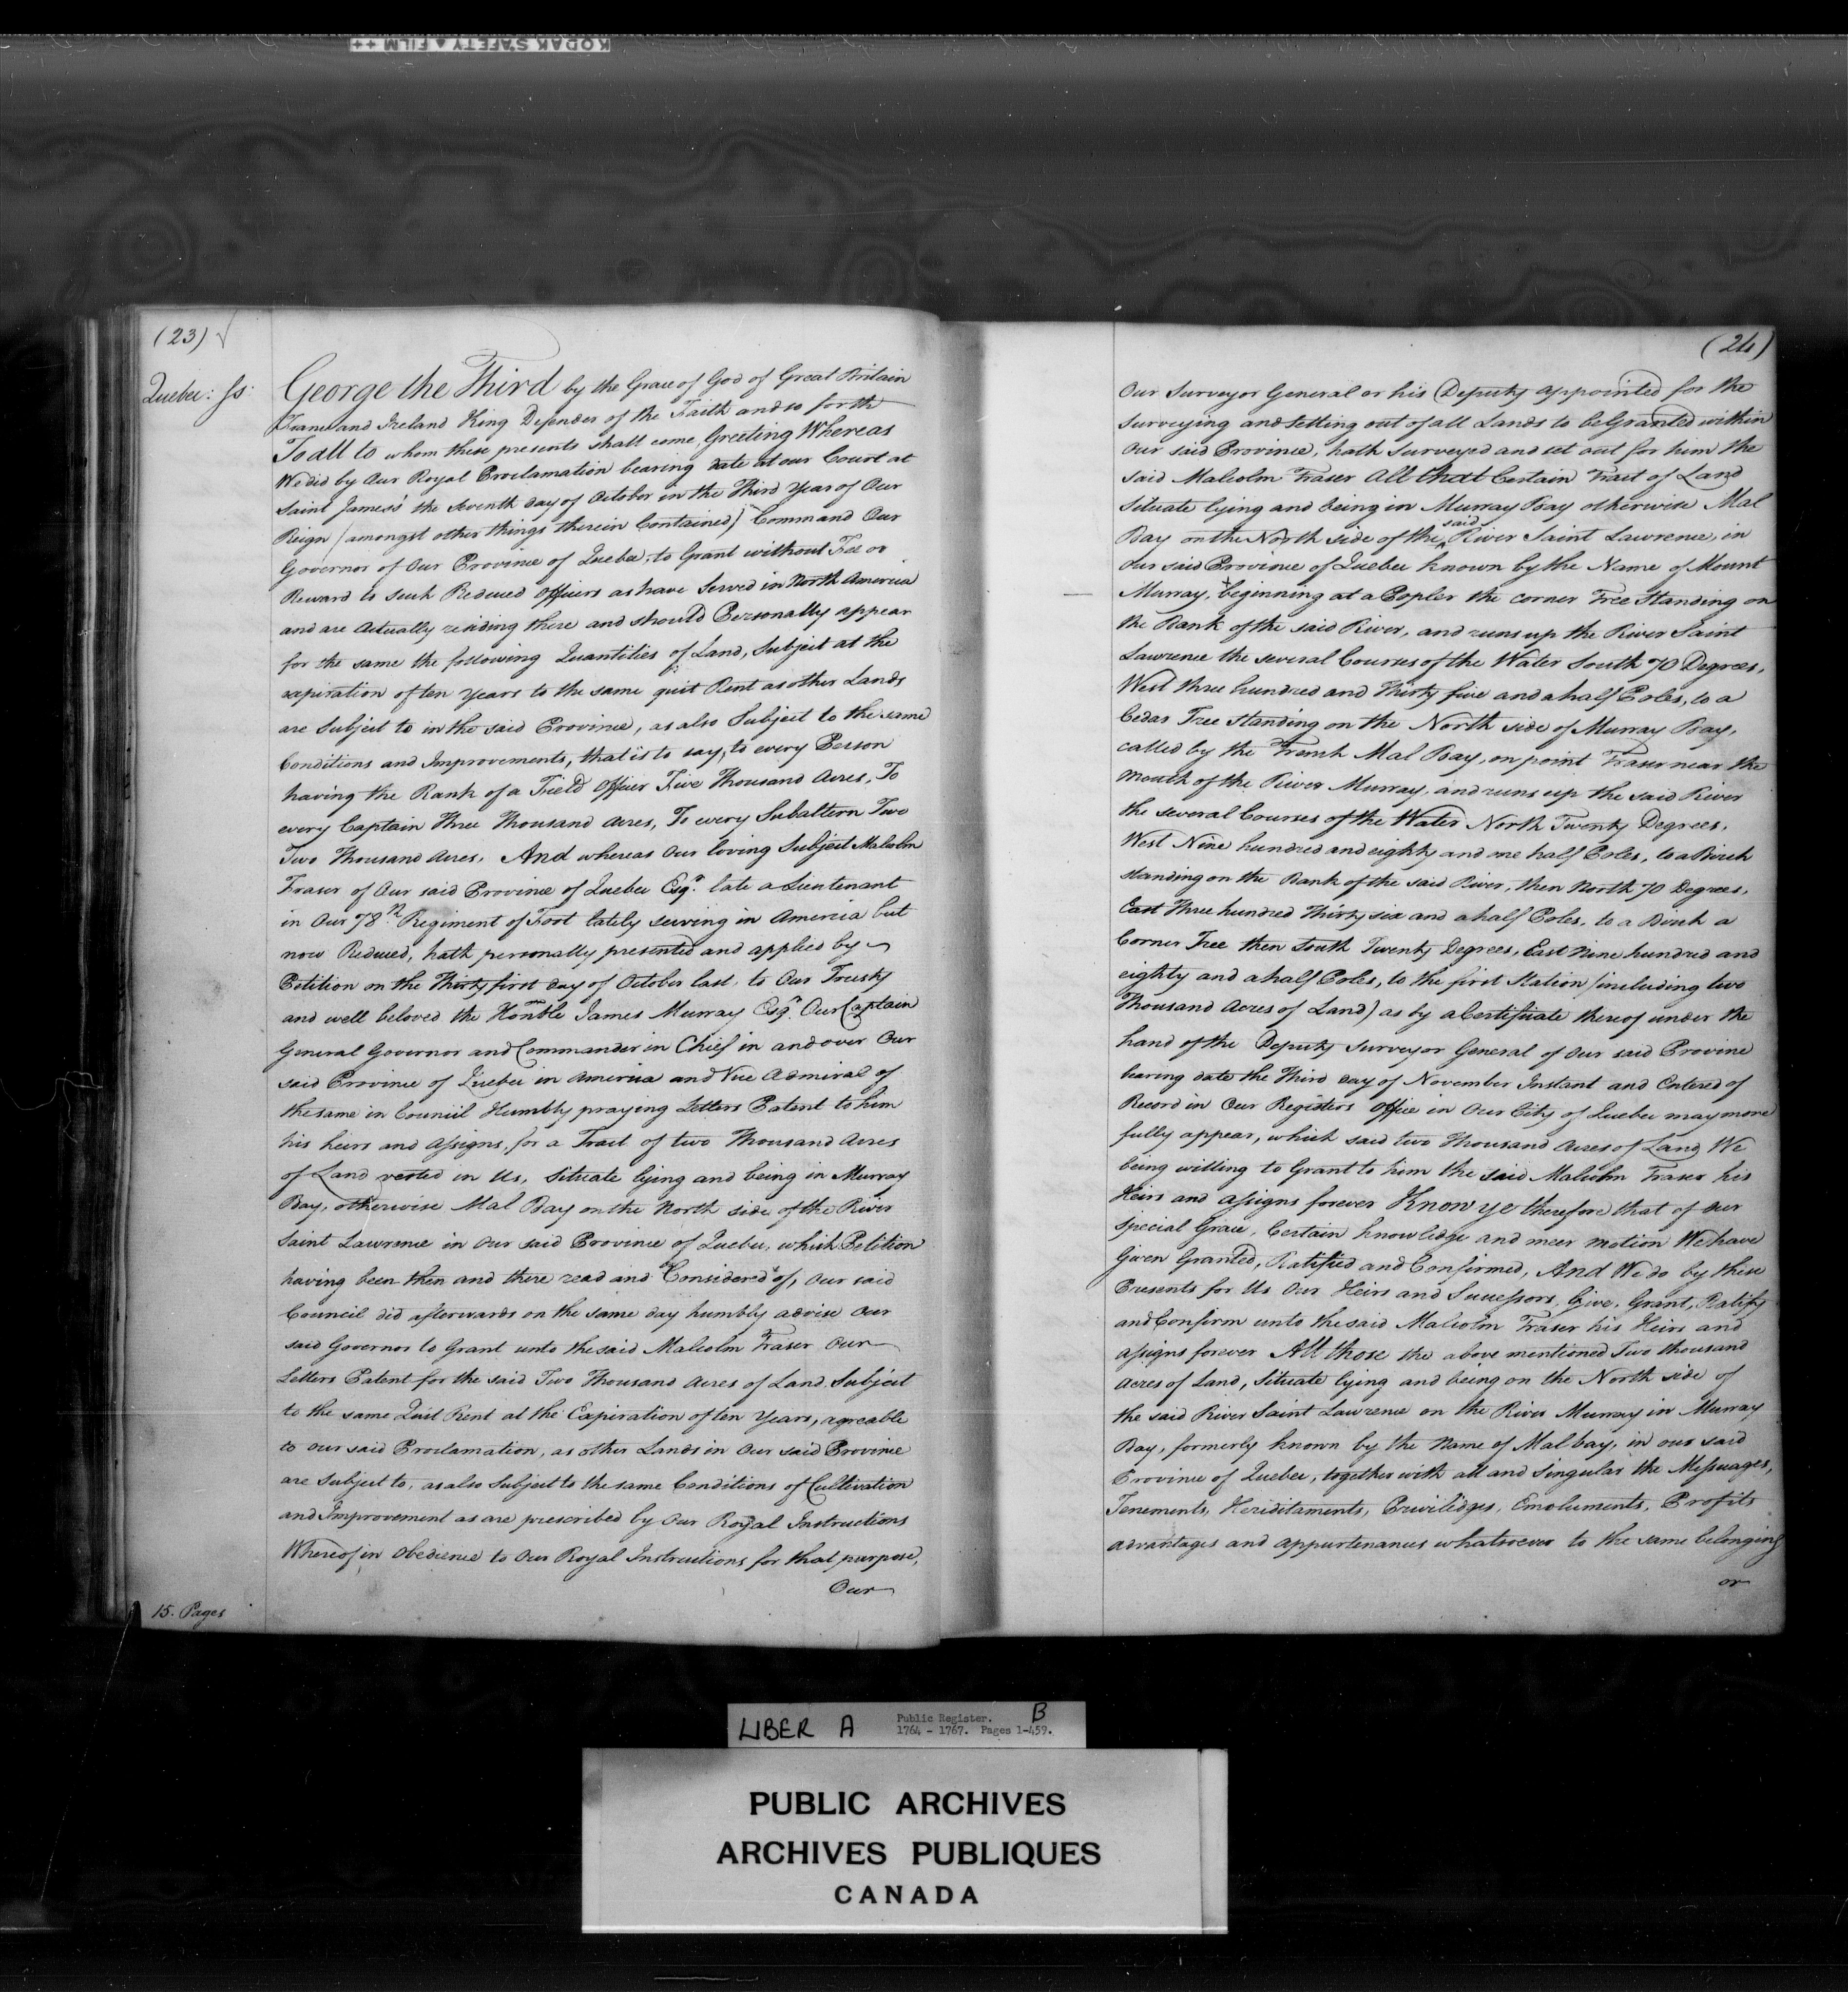 KODAK SAFETY FILM ++
(23) √
Quebec: ss.
George the Third by the Grace of God of Great Britain
France and Ireland King Defender of the Faith and so forth
To all to whom these presents shall come, Greeting Whereas
We did by Our Royal Proclamation bearing date at our Court at
Saint James's the Seventh day of October in the Third Year of Our
Reign (amongst other things therein Contained) Command Our
Governor of Our Province of Quebec, to Grant without Fee or
Reward to such Reduced Officers as have Served in North America
and are Actually residing there and should Personally appear
for the same the following Quantities of Land, Subject at the
expiration of ten Years to the same quit Rent as other Lands
are Subject to in the said Province, as also Subject to the same
Conditions and Improvements, that is to say, to every Person
having the Rank of a Field Officer Five Thousand Acres, To
every Captain Three Thousand Acres, To every Subaltern Two
Two Thousand Acres. And whereas Our loving Subject Malcolm
Fraser of Our said Province of Quebec Esqr. late a Lieutenant
in Our 78th Regiment of Foot lately serving in America but
now Reduced, hath personally presented and applied by
Petition on the Thirty first day of October last, to Our Trusty
and well beloved the Honble James Murray Esqr. Our Captain
General Governor and Commander in Chief in and over Our
said Province of Quebec in America and Vice Admiral of
the same in Council Humbly praying Letters Patent to him
his heirs and Assigns, for a Tract of two Thousand Acres
of Land vested in Us, Situate lying and being in Murray
Bay, otherwise Mal Bay on the North side of the River
Saint Lawrence in Our said Province of Quebec, which Petition
having been then and there read and Considered of, Our said
Council did afterwards on the same day humbly advise Our
said Governor to Grant unto the said Malcolm Fraser Our
Letters Patent for the said Two Thousand Acres of Land Subject
to the same Quit Rent at the Expiration of ten Years, agreable
to our said Proclamation, as other Lands in Our said Province
are Subject to, as also Subject to the same Conditions of Cultivation
and Improvement as are prescribed by Our Royal Instructions
Whereof in Obedience to Our Royal Instructions for that purpose,
Our
15. Pages
(24)
Our Surveyor General or his Deputy appointed for the
Surveying and setting out of all Lands to be Granted within
Our said Province, hath Surveyed and set out for him the
said Malcolm Fraser All that Certain Tract of Land
Situate lying and being in Murray Bay otherwise Mal
Bay on the North side of the said River Saint Lawrence, in
Our said Province of Quebec known by the Name of Mount
Murray, beginning at a Popler the corner Tree Standing on
the Bank of the said River, and runs up the River Saint
Lawrence the several Courses of the Water South 70 Degrees,
West three hundred and Thirty five and a half Poles, to a
Cedar Tree standing on the North side of Murray Bay,
called by the French Mal Bay, on point Fraser near the
Mouth of the River Murray, and runs up the said River
the several Courses of the Water North Twenty Degrees,
West Nine hundred and eighty and one half Poles, to a Birch
standing on the Bank of the said River, then North 70 Degrees,
East Three hundred Thirty six and a half Poles, to a Birch a
Corner Tree then South Twenty Degrees, East Nine hundred and
eighty and a half Poles, to the first Station (including two
Thousand Acres of Land) as by a Certificate thereof under the
hand of the Deputy Surveyor General of Our said Province
bearing date the Third day of November Instant and Entered of
Record in Our Registers Office in Our City of Quebec may more
fully appear, which said two Thousand Acres of Land We
being willing to Grant to him the said Malcolm Fraser his
Heirs and Assigns forever Know ye therefore that of Our
Special Grace, Certain knowledge and meer motion We have
Given Granted, Ratified and Confirmed, And We do by these
Presents for Us Our Heirs and Successors, Give, Grant, Ratify
and Confirm unto the said Malcolm Fraser his Heirs and
Assigns forever All those the above mentioned Two thousand
Acres of Land, Situate lying and being on the North side of
the said River Saint Lawrence on the River Murray in Murray
Bay, formerly known by the Name of Malbay, in our said
Province of Quebec, together with all and Singular the Messuages,
Tenements, Hereditaments, Priviledges, Emoluments, Profits
Advantages and Appurtenances whatsoever to the same belonging
or
LIBER A
Public Register. B
1764 - 1767. Pages 1-459.
PUBLIC ARCHIVES
ARCHIVES PUBLIQUES
CANADA